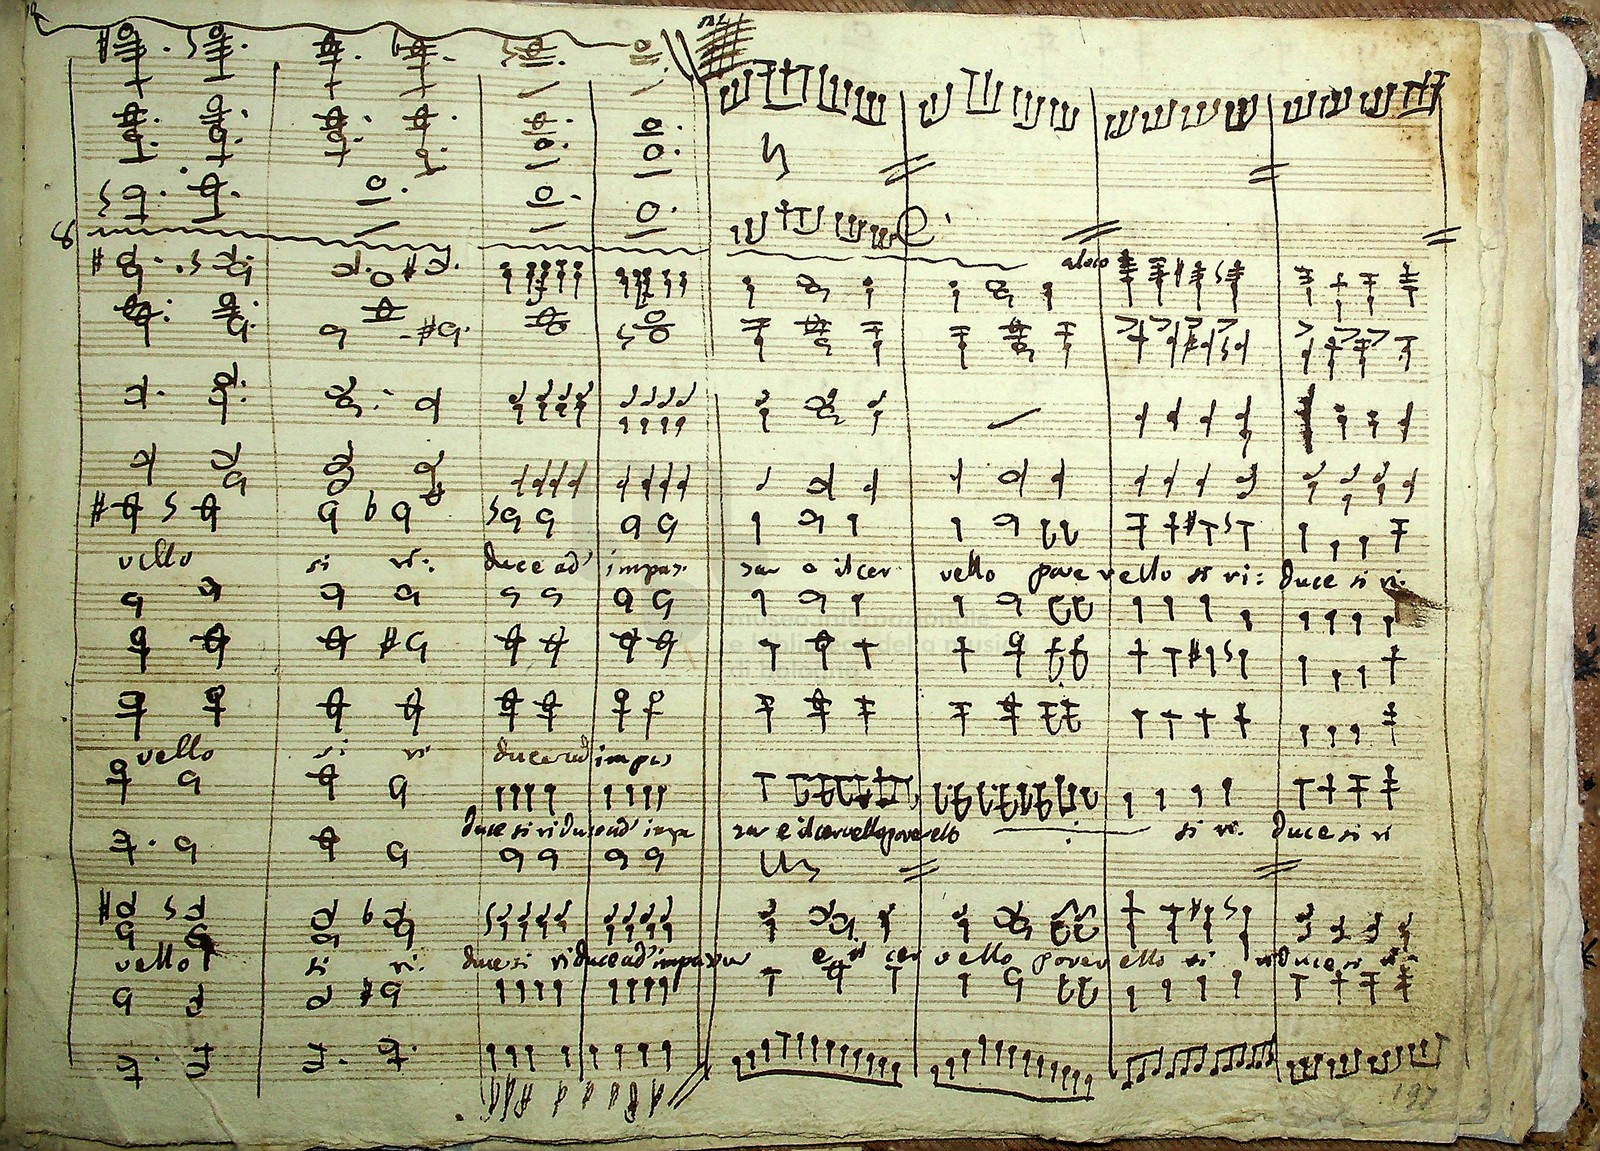 vello si ri: duce ad impas sar e il cer vello pove rello si ri: duce si ri:
museo internazionale
e biblioteca della musica
di bologna
vello si ri duce ad impas
duce si ri duce ad impa sar e il cervello poverello si ri. duce si ri
vello si ri: duce si ri duce ad impassar e il cer vello pover ello si ri duce si ri
197